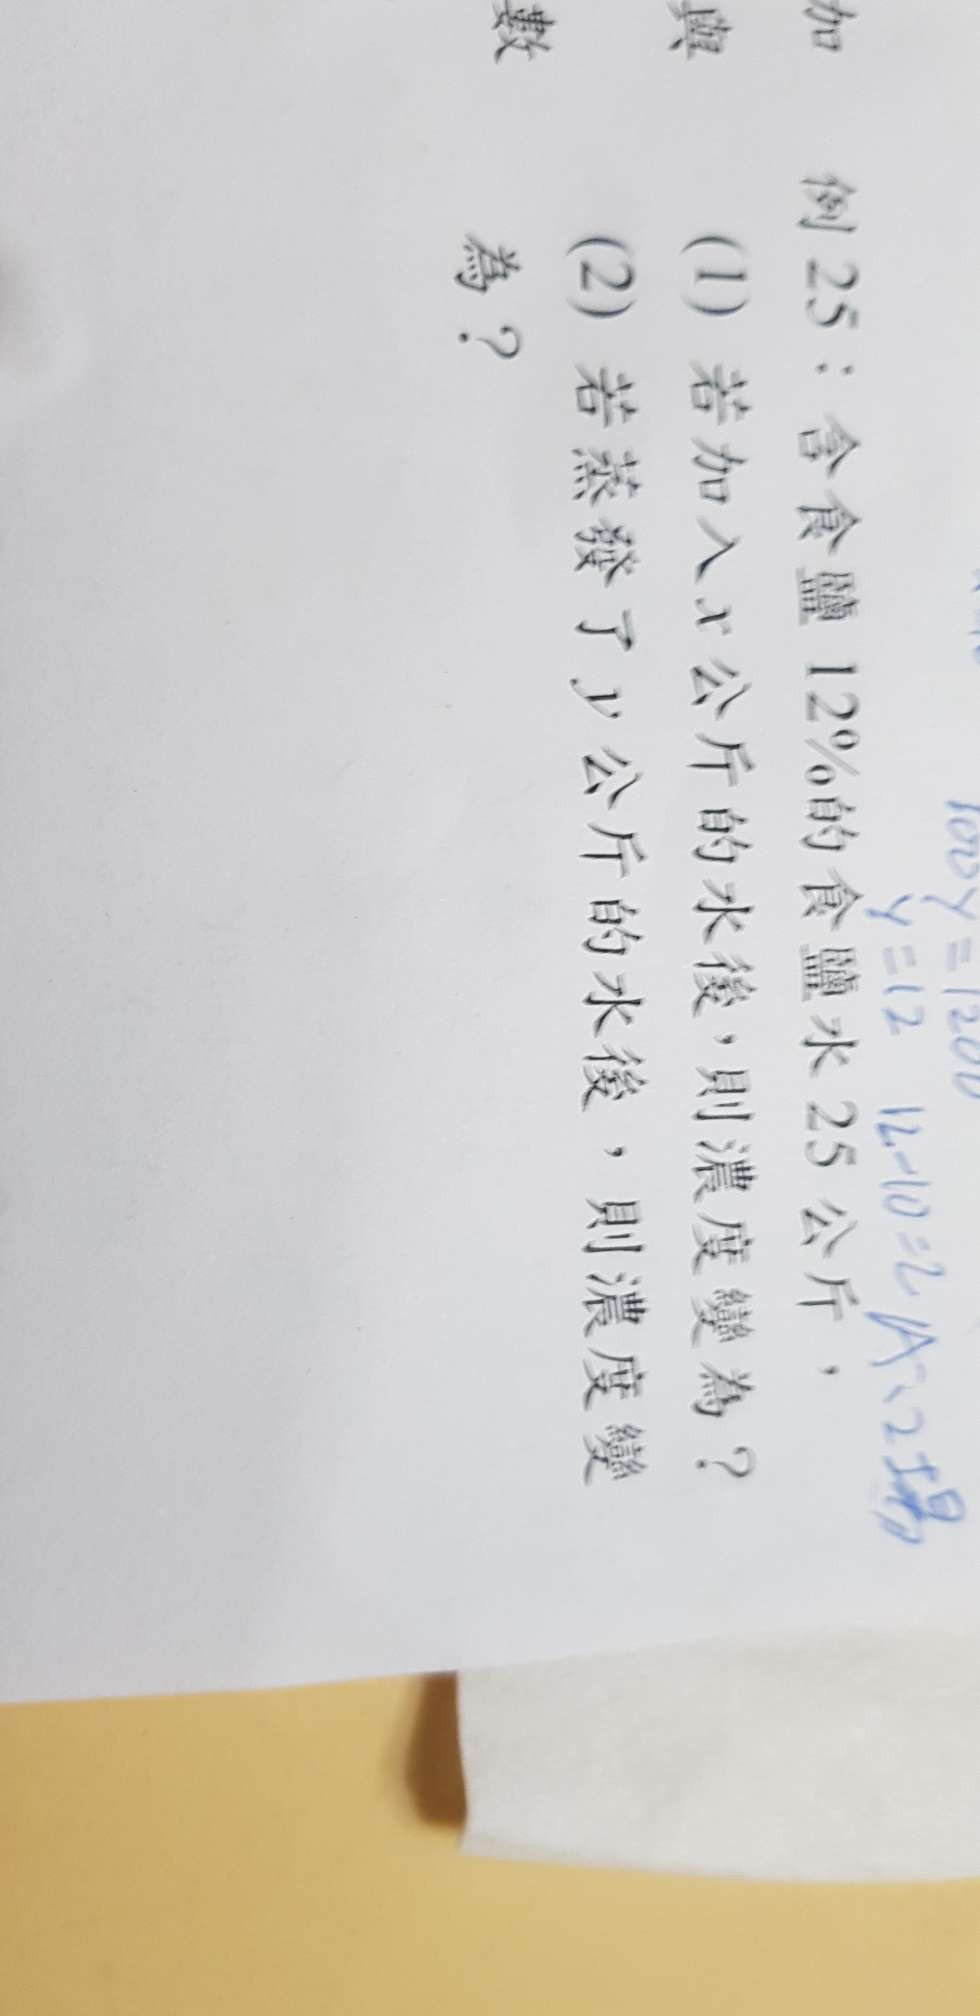 100y=1200
y=12 12-10=2 A:2場
加
例 25：含食鹽 12%的食鹽水 25 公斤，
與
(1) 若加入 x 公斤的水後，則濃度變為？
(2) 若蒸發了 y 公斤的水後，則濃度變
數
為？